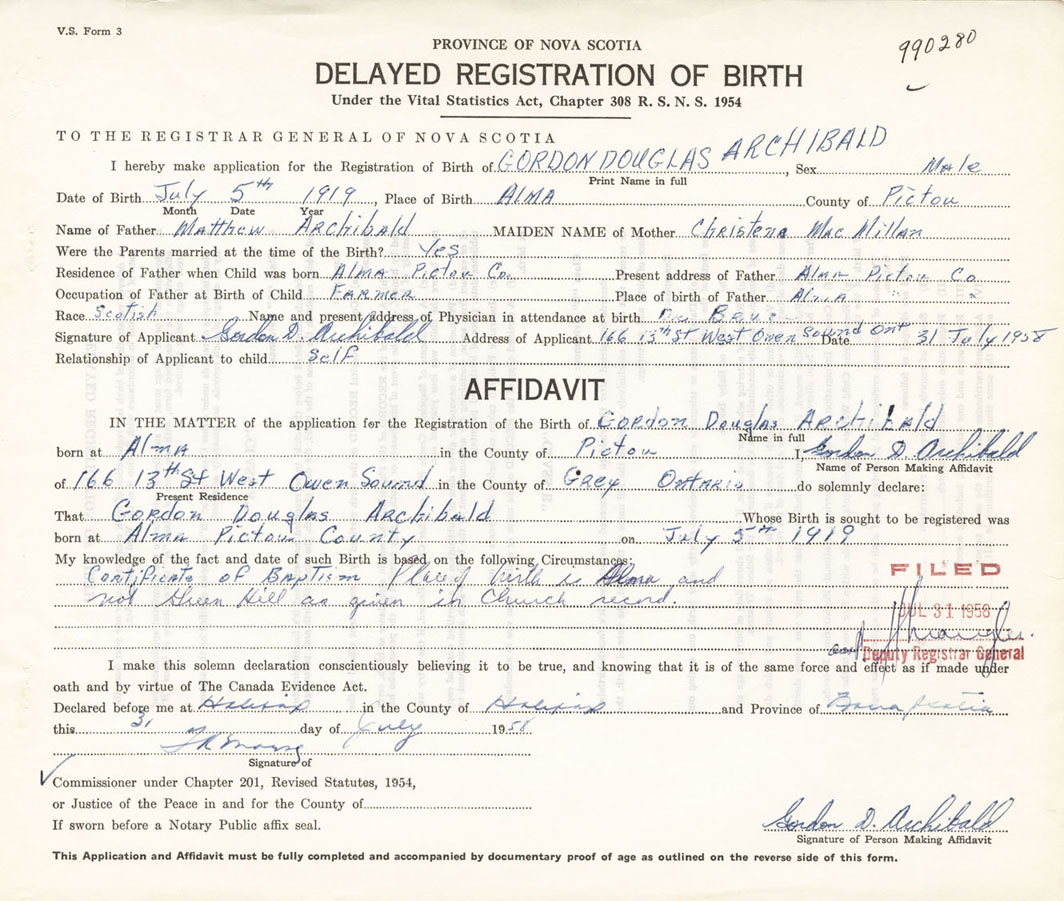 V.S. Form 3
990280
PROVINCE OF NOVA SCOTIA
DELAYED REGISTRATION OF BIRTH
Under the Vital Statistics Act, Chapter 308 R. S. N. S. 1954
TO THE REGISTRAR GENERAL OF NOVA SCOTIA
I hereby make application for the Registration of Birth of GORDON DOUGLAS ARCHIBALD, Sex Male
Print Name in full
Date of Birth July 5th 1919, Place of Birth ALMA County of Pictou
Month Date Year
Name of Father Matthew Archibald MAIDEN NAME of Mother Christena Mac Millan
Were the Parents married at the time of the Birth? Yes
Residence of Father when Child was born Alma Pictou Co. Present address of Father Alma Pictou Co
Occupation of Father at Birth of Child Farmer Place of birth of Father Alma " "
Race Scotish Name and present address of Physician in attendance at birth
Signature of Applicant Gordon D. Archibald Address of Applicant 166 13th St West Owen Sound Ont Date 31 July 1958
Relationship of Applicant to child Self
AFFIDAVIT
IN THE MATTER of the application for the Registration of the Birth of Gordon Douglas Archibald
Name in full
born at Alma in the County of Pictou I, Gordon D. Archibald
Name of Person Making Affidavit
of 166 13th St West Owen Sound in the County of Grey Ontario do solemnly declare:
Present Residence
That Gordon Douglas Archibald Whose Birth is sought to be registered was
born at Alma Pictou County on July 5th 1919
My knowledge of the fact and date of such Birth is based on the following Circumstances:
Certificate of Baptism Place of birth is Alma and
not Green Hill as given in Church record.
FILED
JUL 31 1958
Deputy Registrar General
I make this solemn declaration conscientiously believing it to be true, and knowing that it is of the same force and effect as if made under
oath and by virtue of The Canada Evidence Act.
Declared before me at Halifax in the County of Halifax and Province of Nova Scotia
this 31 day of July 1958
Signature of
Commissioner under Chapter 201, Revised Statutes, 1954,
or Justice of the Peace in and for the County of
If sworn before a Notary Public affix seal.
Gordon D. Archibald
Signature of Person Making Affidavit
This Application and Affidavit must be fully completed and accompanied by documentary proof of age as outlined on the reverse side of this form.